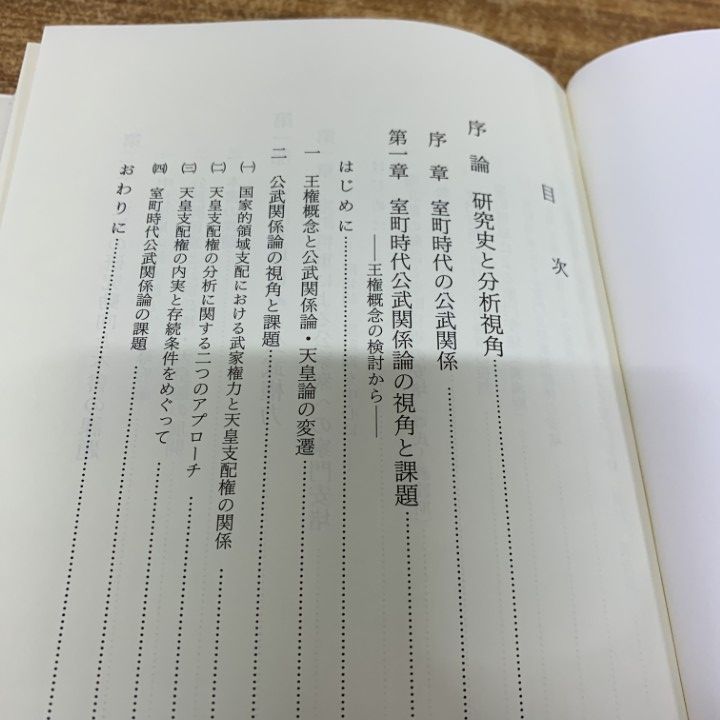 目次
序論 研究史と分析視角
序章 室町時代の公武関係
第一章 室町時代公武関係論の視角と課題
――王権概念の検討から――
はじめに
一 王権概念と公武関係論・天皇論の変遷
二 公武関係論の視角と課題
㈠ 国家的領域支配における武家権力と天皇支配権の関係
㈡ 天皇支配権の分析に関する二つのアプローチ
㈢ 天皇支配権の内実と存続条件をめぐって
㈣ 室町時代公武関係論の課題
おわりに